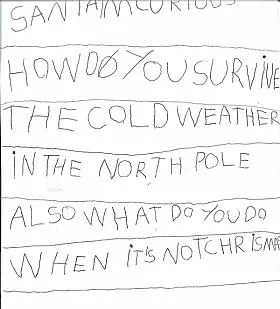 SANTA IM CURIOUS
HOW DO YOU SURVIVE
THE COLD WEATHER
IN THE NORTH POLE
ALSO WHAT DO YOU DO
WHEN IT'S NOT CHRISMA